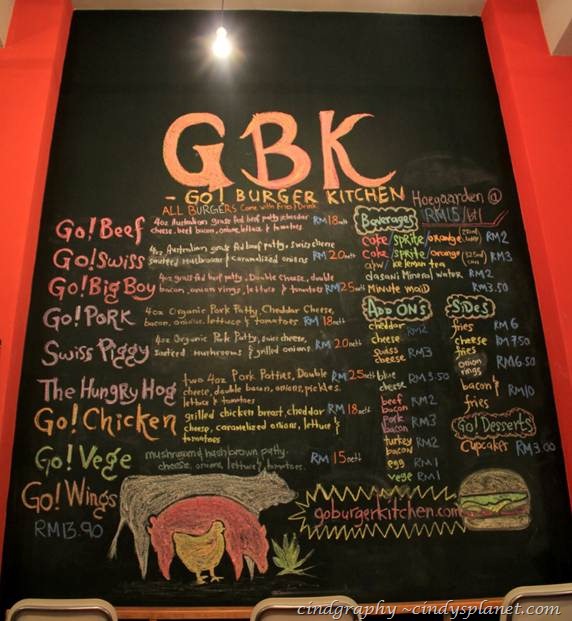 GBK
- GO! BURGER KITCHEN
ALL BURGERS Come with Fries/Drink
Go! Beef 4oz Australian grass fed beef patty, cheddar RM18nett
cheese, beef bacon, onion, lettuce & tomatoes
Go! Swiss 4oz Australian grass fed beef patty, swiss cheese RM 20nett
sauteed mushrooms & caramelized onions
Go! Big Boy 4oz grass fed beef patty, Double cheese, double RM25nett
bacon, onion rings, lettuce & tomatoes
Go! PORK 4oz Organic Pork Patty, Cheddar Cheese,
bacon, onions, lettuce & tomatoes RM 18nett
Swiss Piggy 4oz Organic Pork Patty, swiss cheese, RM 20nett
sauteed mushrooms & grilled onions.
The Hungry Hog two 4oz Pork Patties, Double RM25nett
cheese, double bacon, onions, pickles.
lettuce & tomatoes
Go! Chicken grilled chicken breast, cheddar RM 18nett
cheese, caramelized onions, lettuce &
tomatoes
Go! Vege mushroom & hashbrown patty. RM 15nett
cheese, onions, lettuce & tomatoes.
Go! Wings
RM13.90
Hoegaarden @
RM15/btl
Beverages
coke/sprite/orange RM2
coke/sprite/orange (325ml can) RM3
ice lemon tea
dasani Mineral water RM2
Minute maid RM3.50
ADD ONS
cheddar RM2
cheese
swiss RM3
cheese
blue RM3.50
cheese
beef RM2
bacon
Pork RM3
bacon
turkey RM2
bacon
egg RM1
vege RM1
SiDES
fries RM6
cheese RM7.50
fries
onion RM6.50
rings
bacon RM10
fries
Go! Desserts
Cupcakes RM3.00
goburgerkitchen.com
cindgraphy ~cindysplanet.com